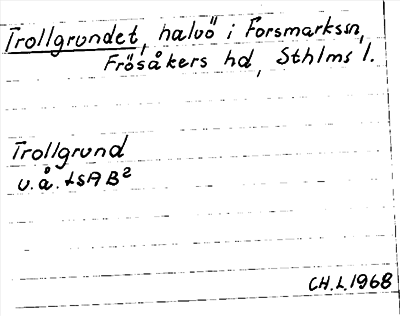 Trollgrundet, halvö i Forsmarkssn,
Frösåkers hd, Sthlms l.
Trollgrund
u.å. tSAB²
CH.L.1968